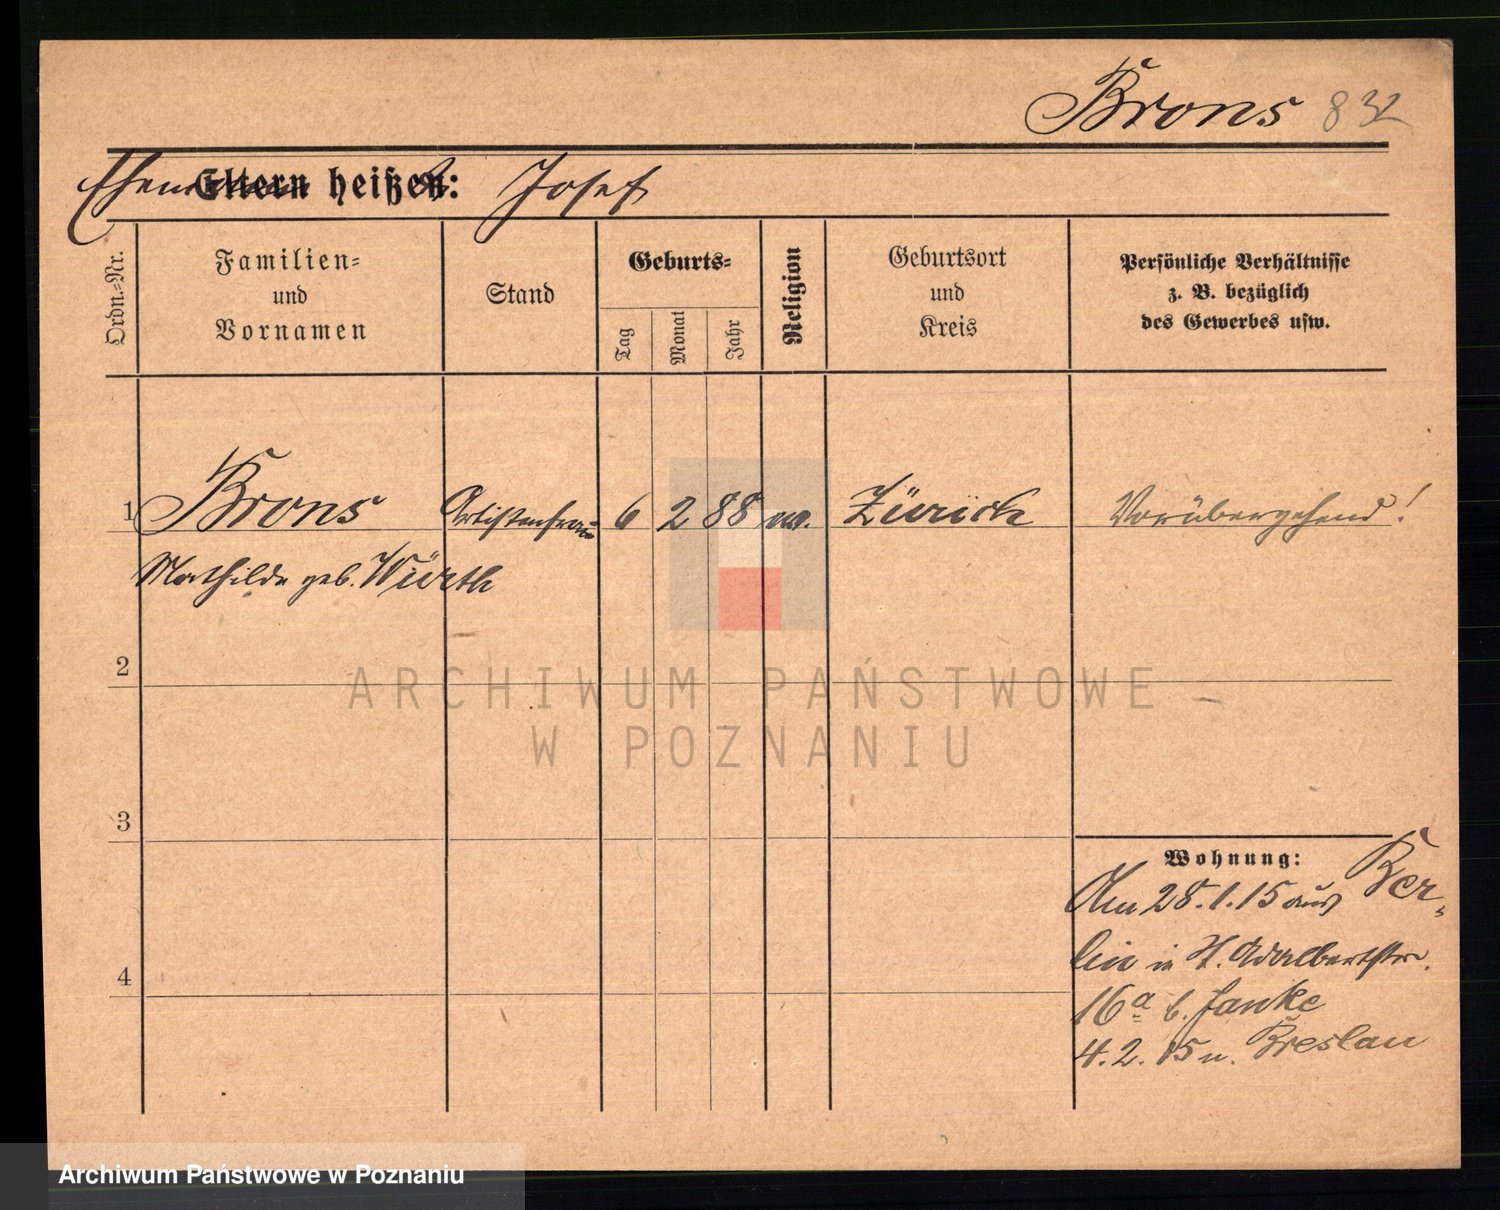 Brons 832
Eheman Eltern heißt: Josef
Ordn.-Nr.
Familien-
und
Vornamen
Stand
Geburts-
Tag
Monat
Jahr
Religion
Geburtsort
und
Kreis
Persönliche Verhältnisse
z. B. bezüglich
des Gewerbes usw.
1 Brons Artistenfrau 6 2 88 ev. Zürich Vorübergehend!
Mathilde geb. Würth
2
ARCHIWUM PAŃSTWOWE
W POZNANIU
3
Wohnung:
Am 28.1.15 aus Ber-
lin in St. Adalbertstr.
16a b. Janke
4.2.15 n. Breslau
4
Archiwum Państwowe w Poznaniu